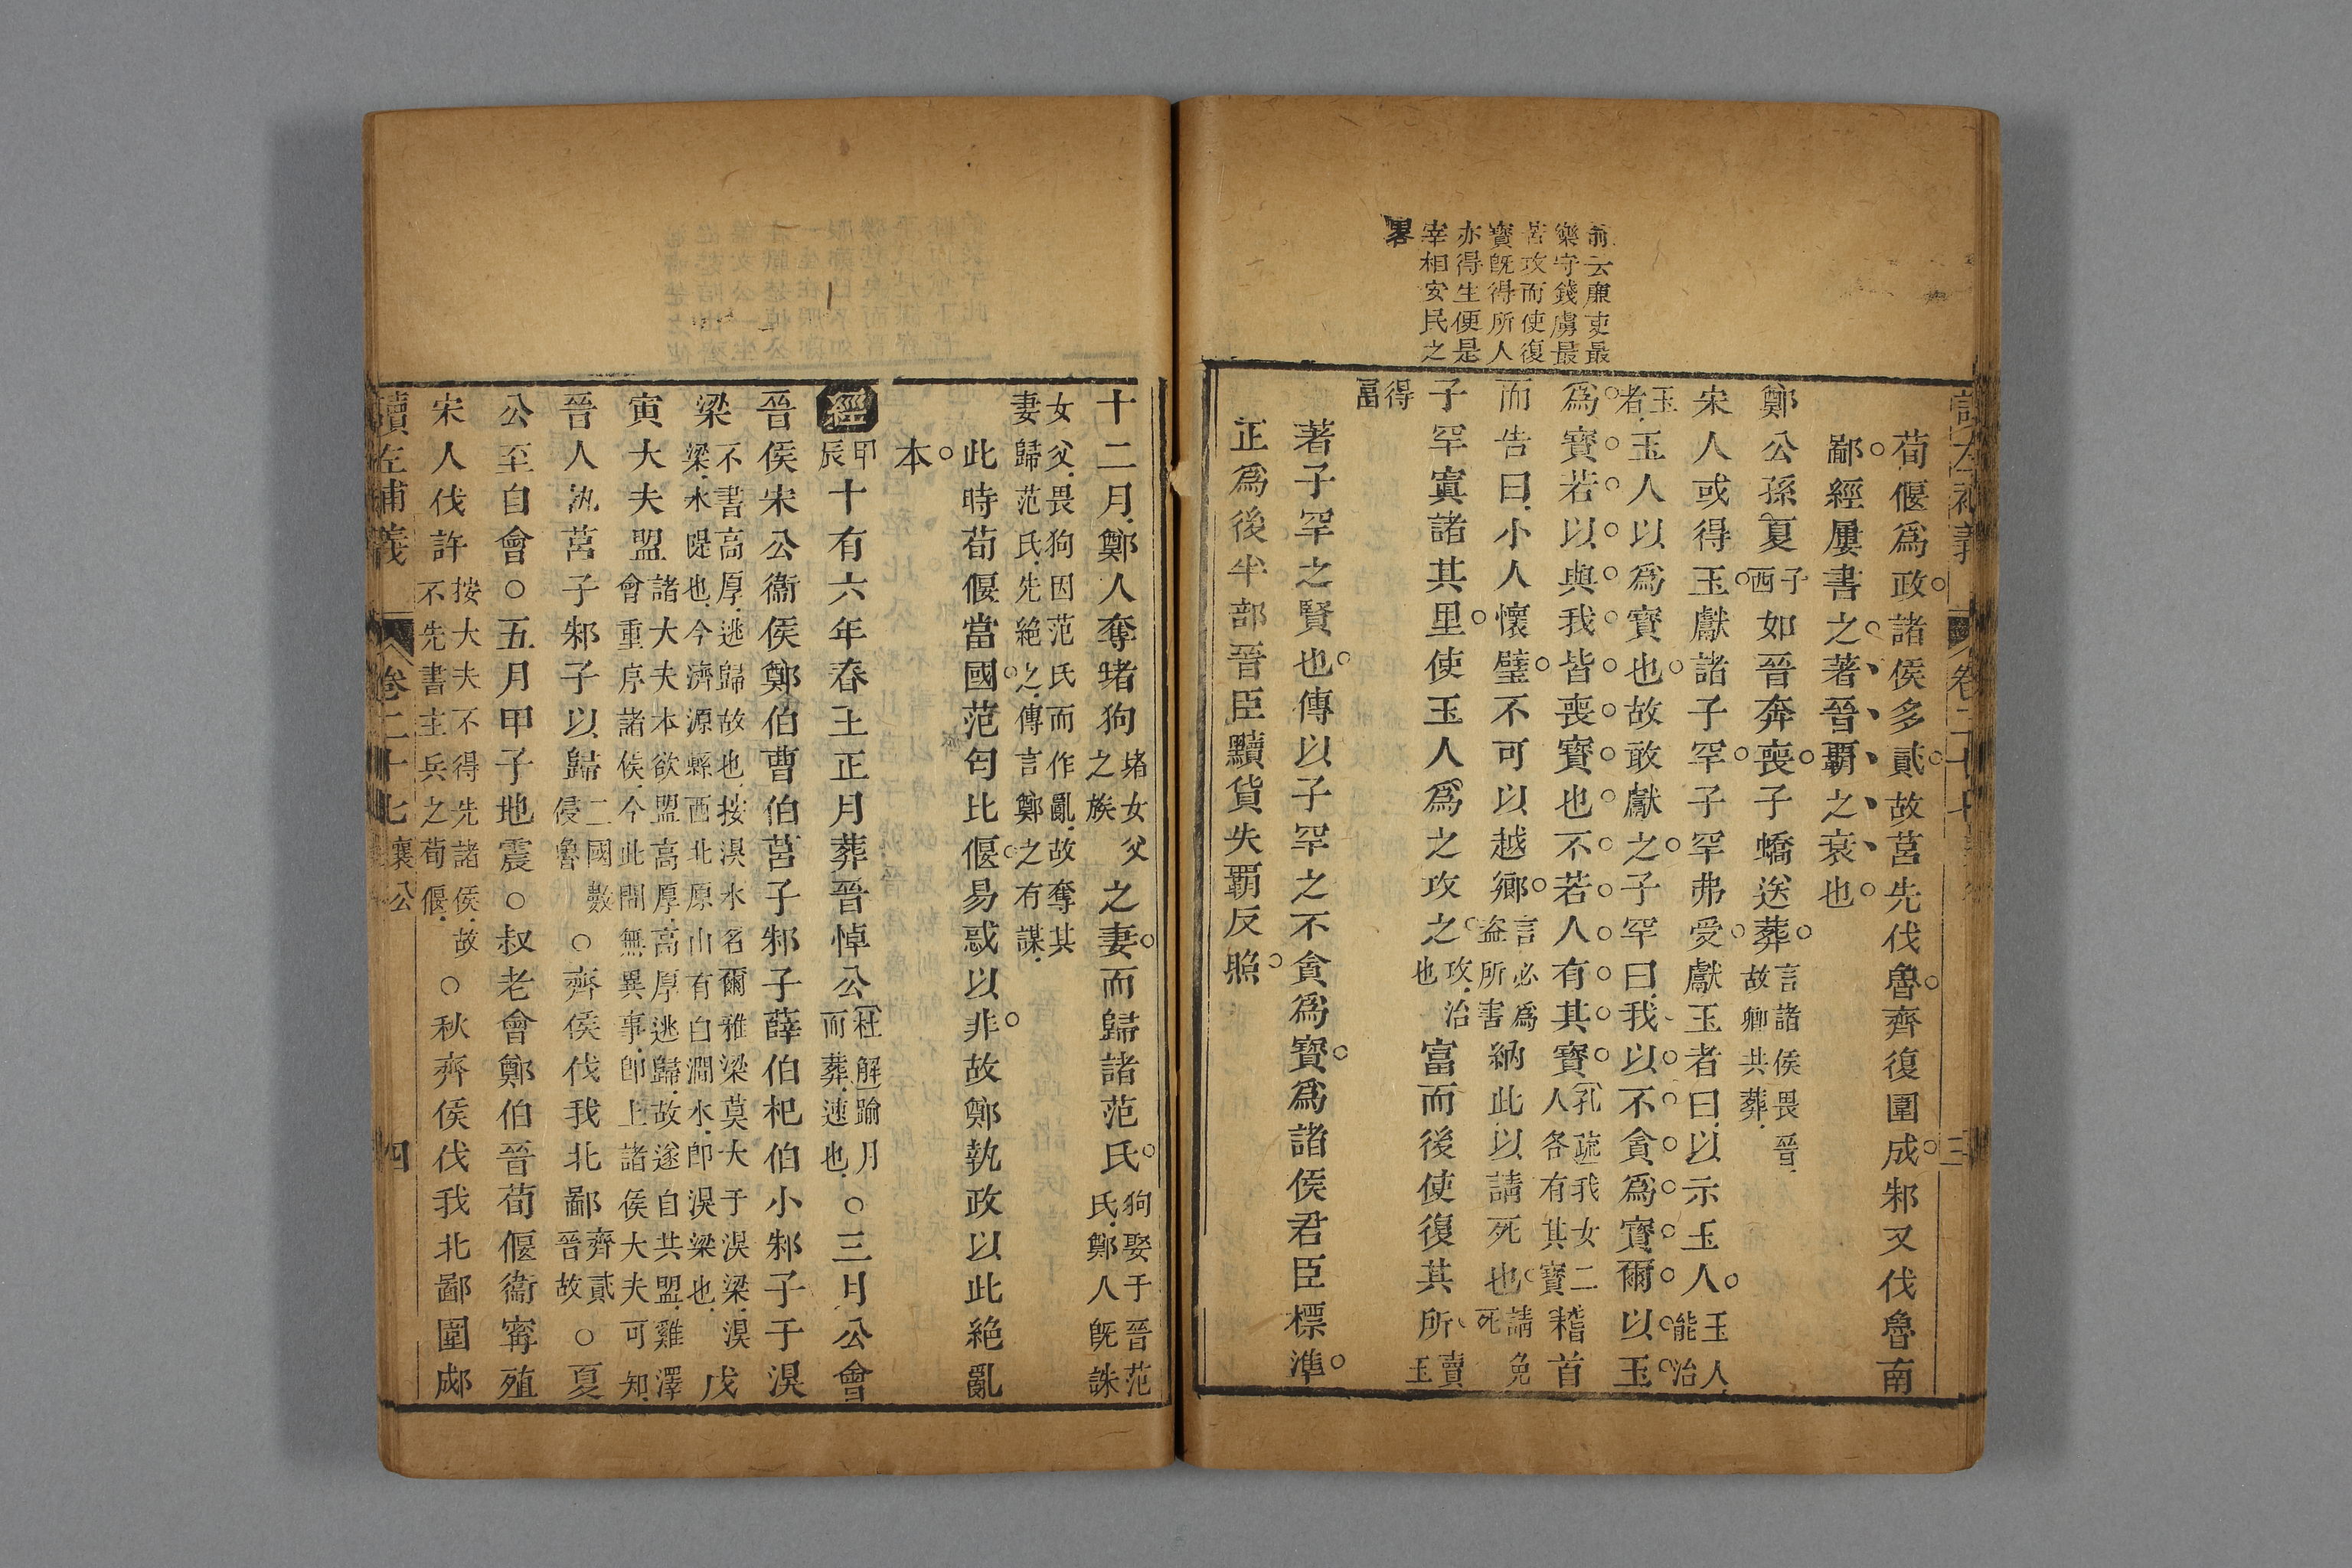 讀左補義 卷二十七 三
荀偃爲政諸侯多貳故莒先伐魯齊復圍成邾又伐魯南
鄙經屢書之著晉覇之衰也
鄭公孫夏子西如晉奔喪子蟜送葬言諸侯畏晉故卿共葬
宋人或得玉獻諸子罕子罕弗受獻玉者曰以示玉人玉人能治
玉者玉人以爲寶也故敢獻之子罕曰我以不貪爲寶爾以玉
爲寶若以與我皆喪寶也不若人有其寶孔疏我女二人各有其寶稽首
而告曰小人懷璧不可以越鄉言必爲盜所害納此以請死也請免死
子罕寘諸其里使玉人爲之攻之攻治也富而後使復其所賣玉
得富
著子罕之賢也傳以子罕之不貪爲寶爲諸侯君臣標準
正爲後半部晉臣黷貨失覇反照
前云廉吏最
樂守錢虜最
苦攻而使復
寶旣得所人
亦得生便是
宰相安民之
畧
十二月鄭人奪堵狗堵女父之族之妻而歸諸范氏狗娶于晉范氏鄭人旣誅
女父畏狗因范氏而作亂故奪其妻歸范氏先絕之傳言鄭之有謀
此時荀偃當國范匄比偃易惑以非故鄭執政以此絕亂
本
經甲辰十有六年春王正月葬晉悼公杜解踰月而葬速也○三月公會
晉侯宋公衞侯鄭伯曹伯莒子邾子薛伯杞伯小邾子于湨
梁不書高厚逃歸故也按湨水名爾雅梁莫大于湨梁湨梁水隄也今濟源縣西北原山有白澗水卽湨梁也戊
寅大夫盟諸大夫本欲盟高厚高厚逃歸故遂自共盟雞澤會重序諸侯今此間無異事卽上諸侯大夫可知
晉人執莒子邾子以歸二國數侵魯○齊侯伐我北鄙齊貳晉故○夏
公至自會○五月甲子地震○叔老會鄭伯晉荀偃衞甯殖
宋人伐許按大夫不得先諸侯故不先書主兵之荀偃○秋齊侯伐我北鄙圍郕
讀左補義 卷二十七 襄公 四